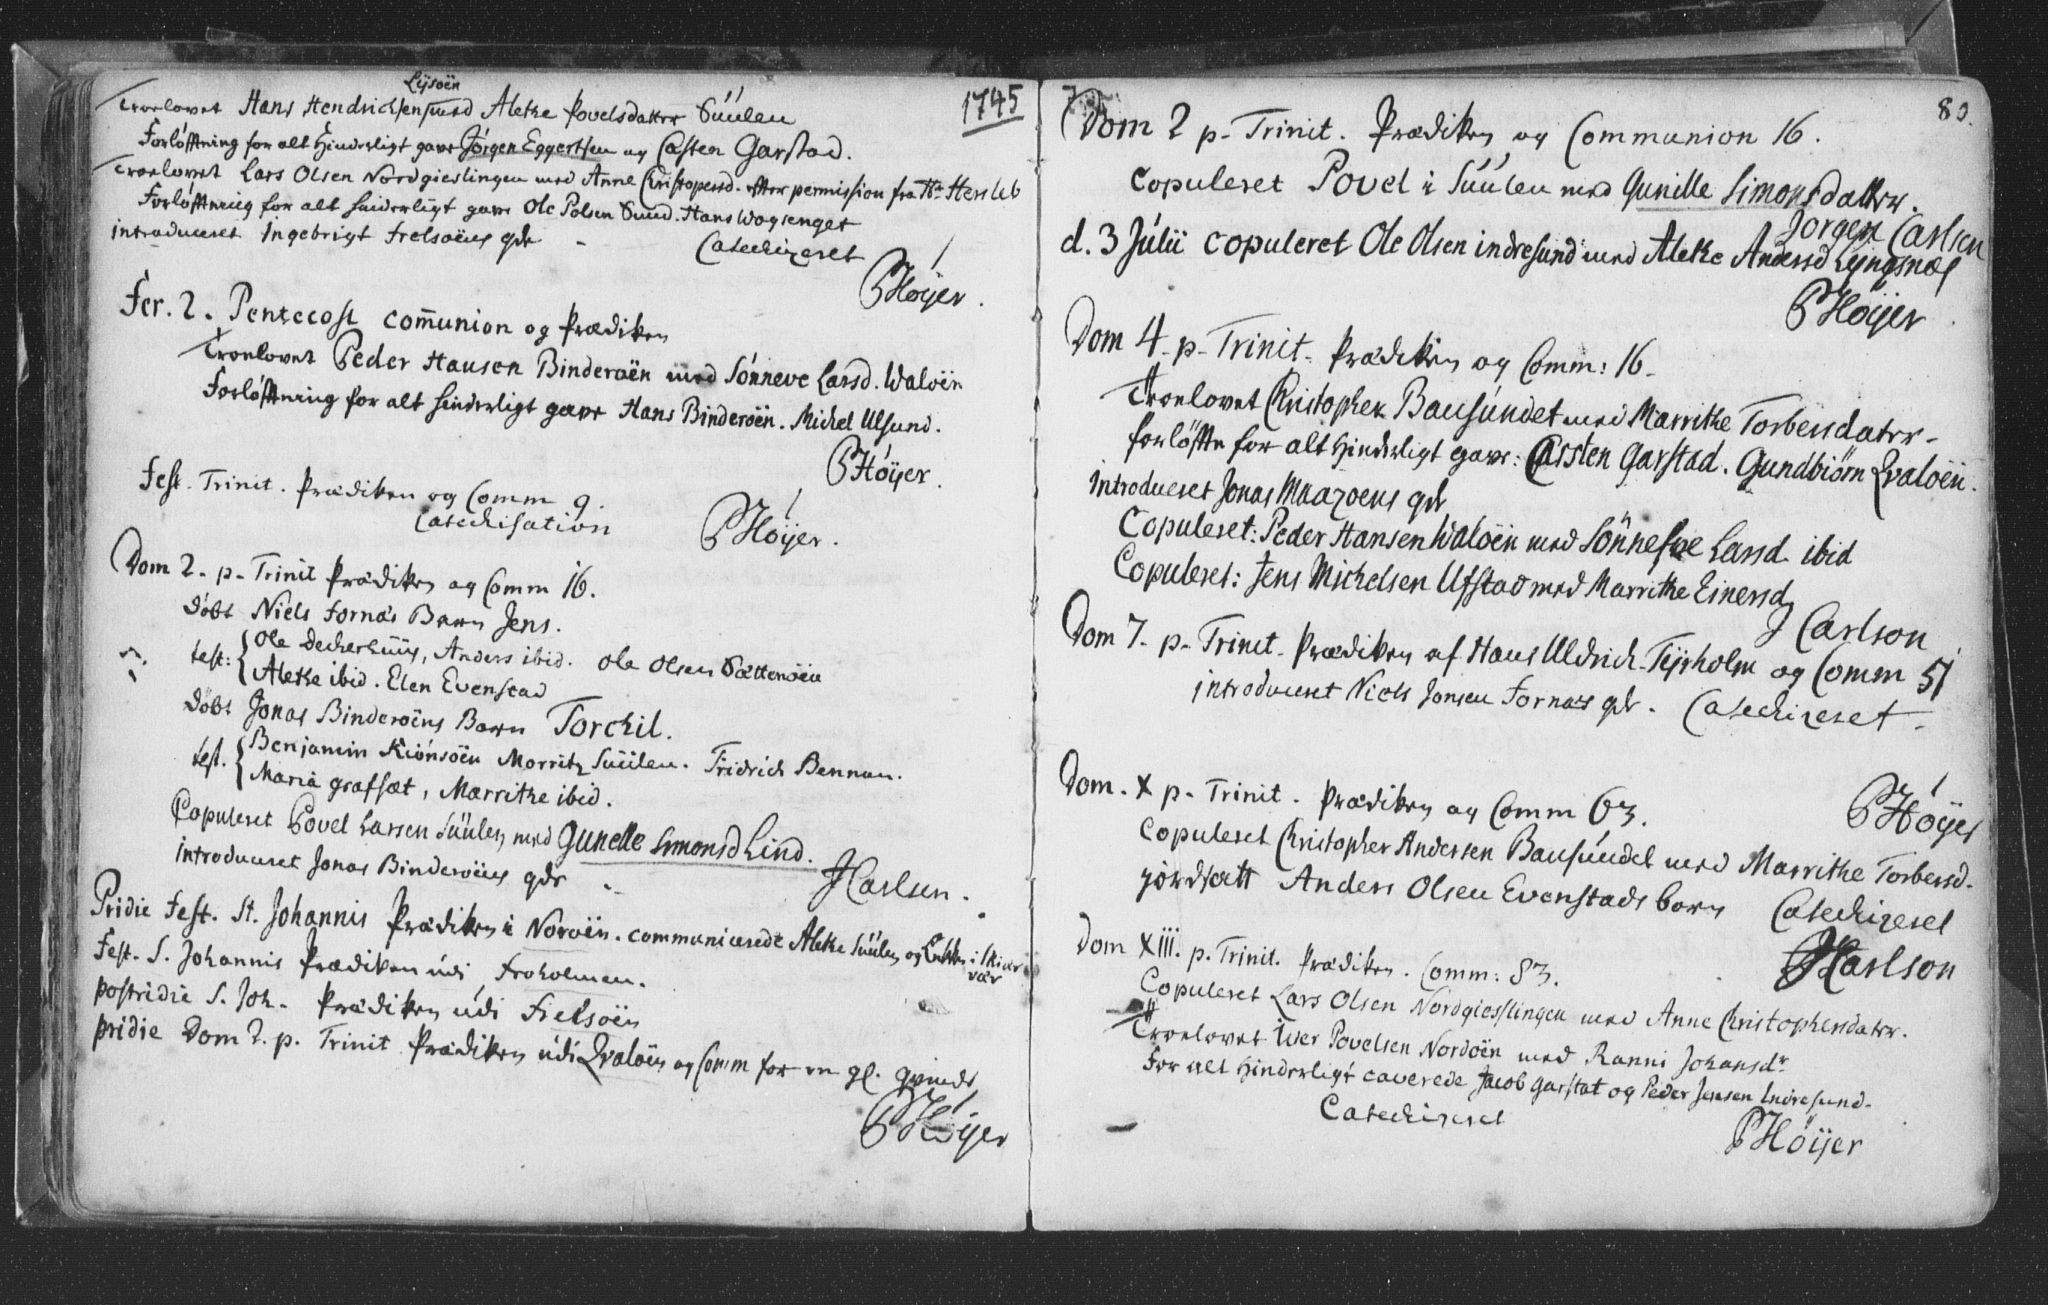 1745
Lysöen
Troelovet Hans Hendrichsen med Aletke Povelsdatter Süülen
Forløfftning for alt Hinderligt gave Jörgen Eggertsen og Casten Garstad.
Troelovet Lars Olsen Nordgieslingen med Anne Christopersd. efter permission fra Hr Hersleb
Forløfftning for alt hinderligt gave Ole Polsen Sund. Hans Wogsenget
introduceret Ingebrigt Frelsöens qde
Catechizeret
PHöyer.
Fer. 2. Pentecost com̄union og Prædiken
Troelovet Peder Hansen Binderöen med Sönneve Larsd. Walöen
Forløfftning for alt hinderligt gave Hans Binderöen. Michel Ulsund.
PHöyer.
Fest. Trinit. Prædiken og Comm 9.
Catechisation
PHöyer.
Dom 2. p. Trinit Prædiken og Comm 16.
döbt Niels Fornæs Barn Jens.
test: Ole Deckerhuus, Anders ibid. Ole Olsen Sættersöen
Aletke ibid. Elen Evenstad
döbt Jonas Binderöens Barn Torchil.
test. Benjamin Kiönsöen Morritz Süülen. Fridrich Bennan.
Maria grafsæt, Marrithe ibid.
Copuleret Povel Larsen Süülen med Gunelle Simonsd Lind.
introduceret Jonas Binderöens qde
JCarlsen.
Pridie Fest. St. Johannis Prædiken i Noroën. communicerede Aletke Süülen og i Skier
vær
Fest. S. Johannis Prædiken udi Froholmen.
Postridie S. Joh. Prædiken udi Fielsöen
Pridie Dom 2. p. Trinit Prædiken udi Qvalöen og Comm for en gl. qvinde
PHöyer
83.
Dom 2 p. Trinit. Prædiken og Communion 16.
Copuleret Povel i Süülen med Gunille Simonsdatter.
Jörgen Carlsen
d. 3 Julii copuleret Ole Olsen indresund med Aletke Andersd Lyngsnæs
PHöyer
Dom 4. p. Trinit. Prædiken og Comm: 16.
Troelovet Christopher Bausundet med Marrithe Torbersdatter.
forløfte for alt Hinderligt gave: Carsten Garstad. Gundbiörn Qvalöen.
introduceret Jonas Maazoens qde
Copuleret: Peder Hansen Walöen med Sönnefve Larsd. ibid
Copuleret: Jens Michelsen Ufstad med Marrithe Einersd
J Carlson
Dom 7. p. Trinit. Prædiken af Hans Uldrich Tyrholm og Comm 51
introduceret Niels Jonsen Fornæs qde. Catechizeret.
PHöyer
Dom. X p. Trinit. Prædiken og Comm 63.
Copuleret Christopher Andersen Bausundet med Marrithe Torbersd.
jordsatt Anders Olsen Evenstads barn Catechizeret
JCarlson
Dom XIII. p. Trinit. Prædiken. Comm: 83.
Copuleret Lars Olsen Nordgiesslingen med Anne Christophersdatter.
Troelovet Iver Povelsen Nordöen med Ranni Johansdr
For alt Hinderligt caverede Jacob Garstat og Peder Jensen Indresund.
Catechizeret
PHöyer